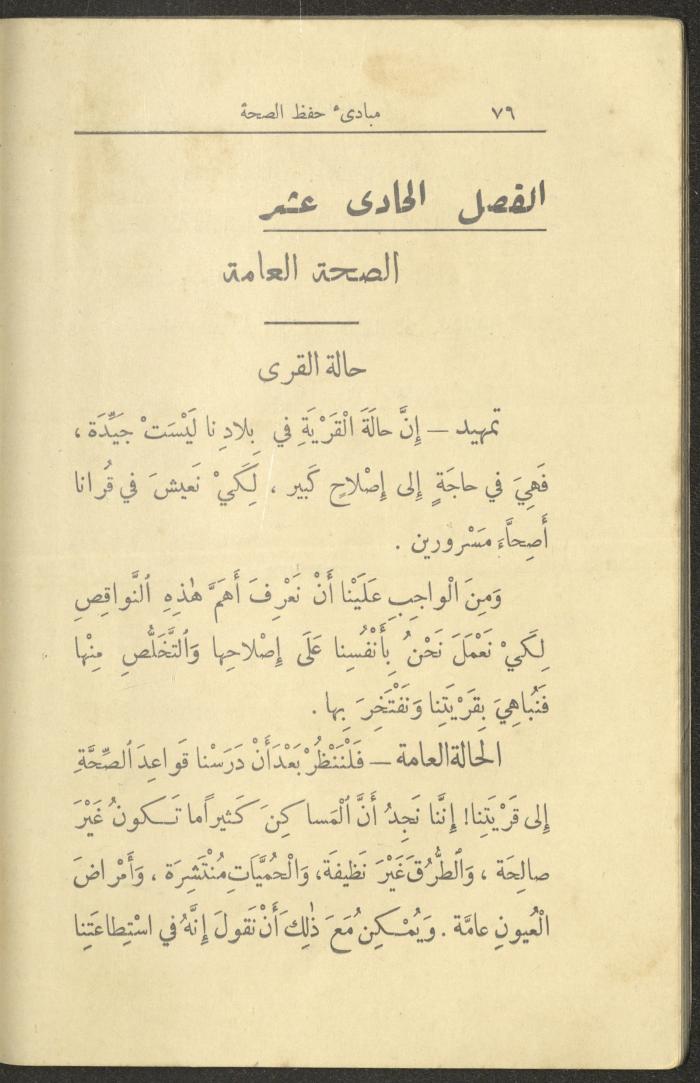 ٧٩ مبادىء حفظ الصحة
الفصل الحادى عشر
الصحة العامة
حالة القرى
تمهيد — إِنَّ حالَةَ الْقَرْيَةِ في بِلادِنا لَيْسَتْ جَيِّدَة ،
فَهِيَ في حاجَةٍ إِلى إِصْلاحٍ كَبير ، لِكَيْ نَعيشَ في قُرانا
أَصِحَّاءَ مَسْرورين .
وَمِنَ الْواجِبِ عَلَيْنا أَنْ نَعْرِفَ أَهَمَّ هٰذِهِ ٱلنَّواقِصِ
لِكَيْ نَعْمَلَ نَحْنُ بِأَنْفُسِنا عَلَى إِصْلاحِها وَٱلتَّخَلُّصِ مِنْها
فَنُباهِيَ بِقَرْيَتِنا وَنَفْتَخِرَ بِها .
الحالة العامة — فَلْنَنْظُرْ بَعْدَ أَنْ دَرَسْنا قَواعِدَ ٱلصِّحَّةِ
إِلى قَرْيَتِنا! إِنَّنا نَجِدُ أَنَّ ٱلْمَساكِنَ كَثيراً ما تَكونُ غَيْرَ
صالِحَة ، وَٱلطُّرُقَ غَيْرَ نَظيفَة، وَالْحُمَّيَاتِ مُنْتَشِرَة ، وَأَمْراضَ
الْعُيونِ عامَّة . وَيُمْكِنُ مَعَ ذٰلِكَ أَنْ نَقولَ إِنَّهُ في اسْتِطاعَتِنا